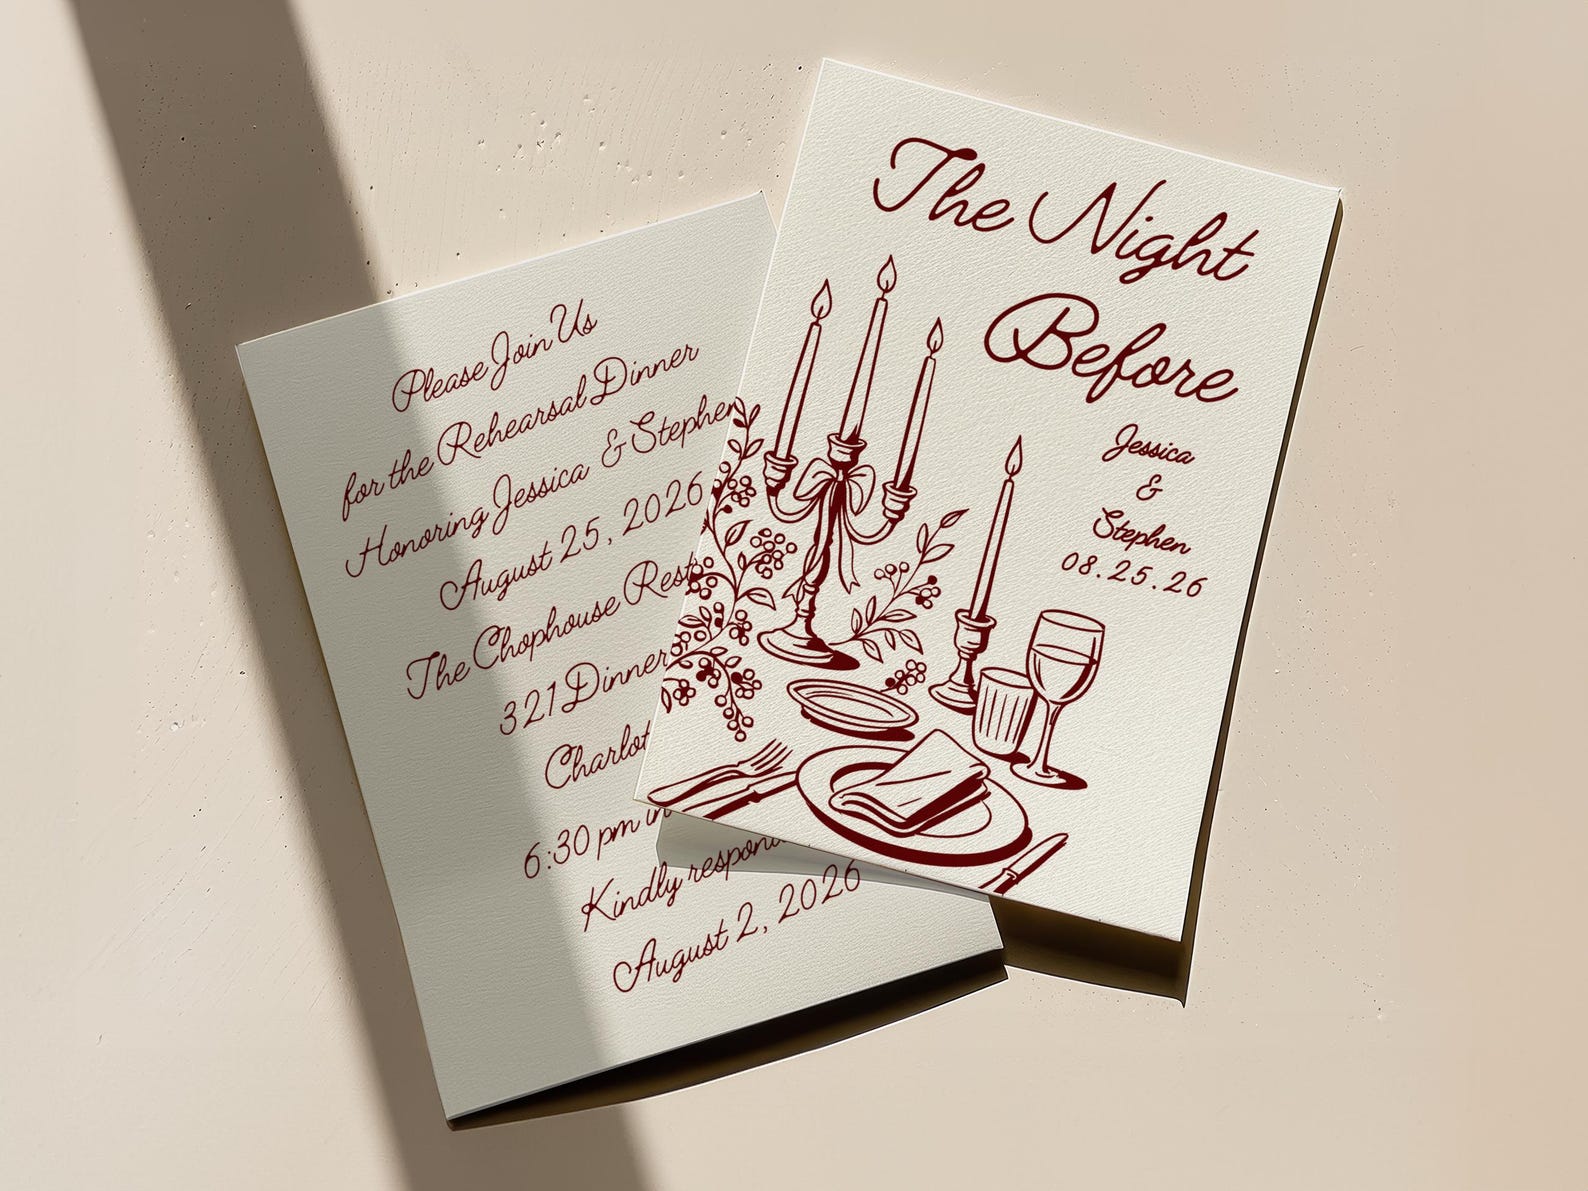 Please Join Us
for the Rehearsal Dinner
Honoring Jessica & Stephen
August 25, 2026
The Chophouse
321 Dinner
6:30 pm in
Kindly
August 2, 2026
The Night
Before
Jessica
&
Stephen
08.25.26